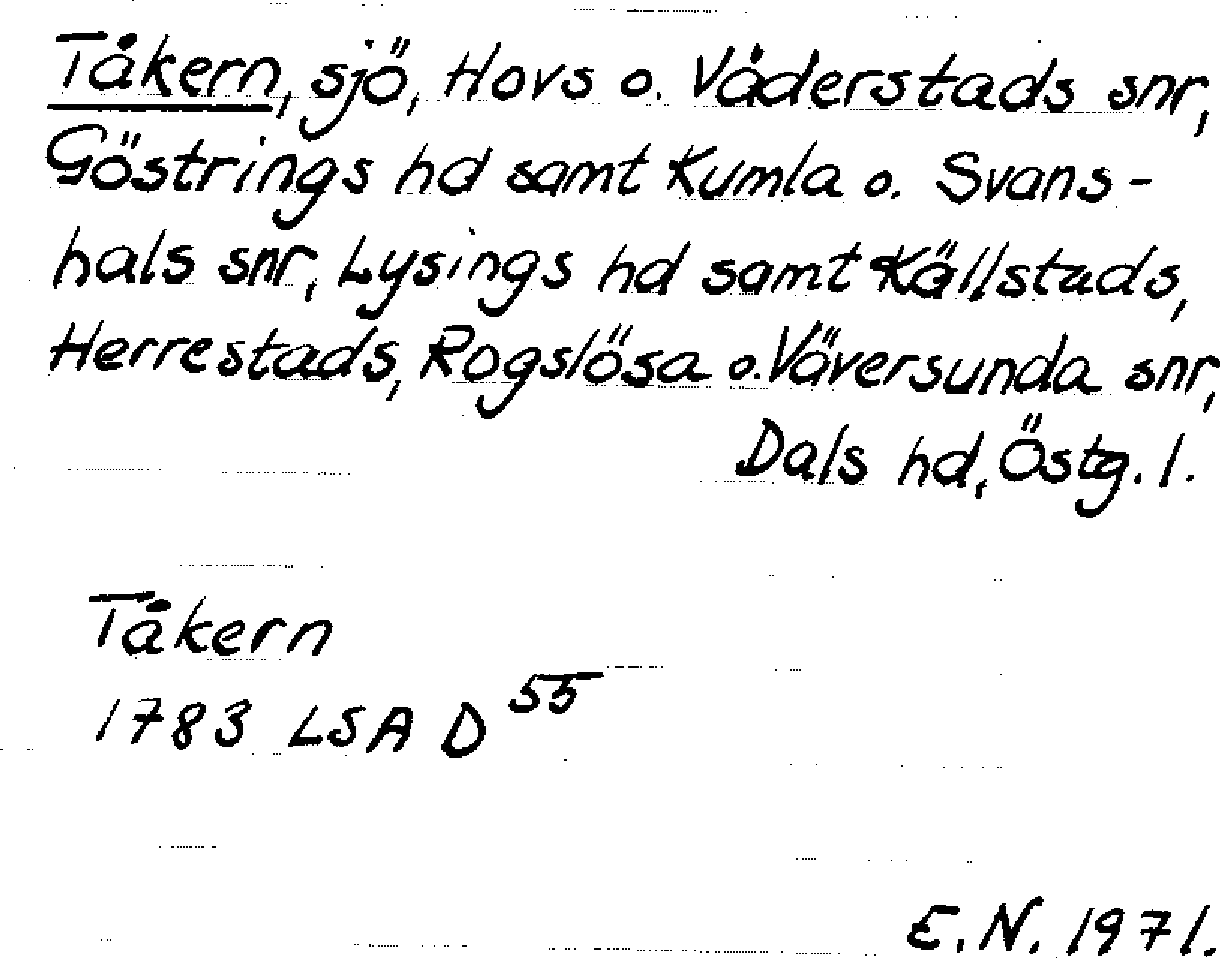 Tåkern, sjö, Hovs o. Väderstads snr,
Göstrings hd samt Kumla o. Svans-
hals snr, Lysings hd samt Källstads,
Herrestads, Rogslösa o. Väversunda snr,
Dals hd, Östg. l.
Tåkern
1783 LSA D 55
E.N. 1971.